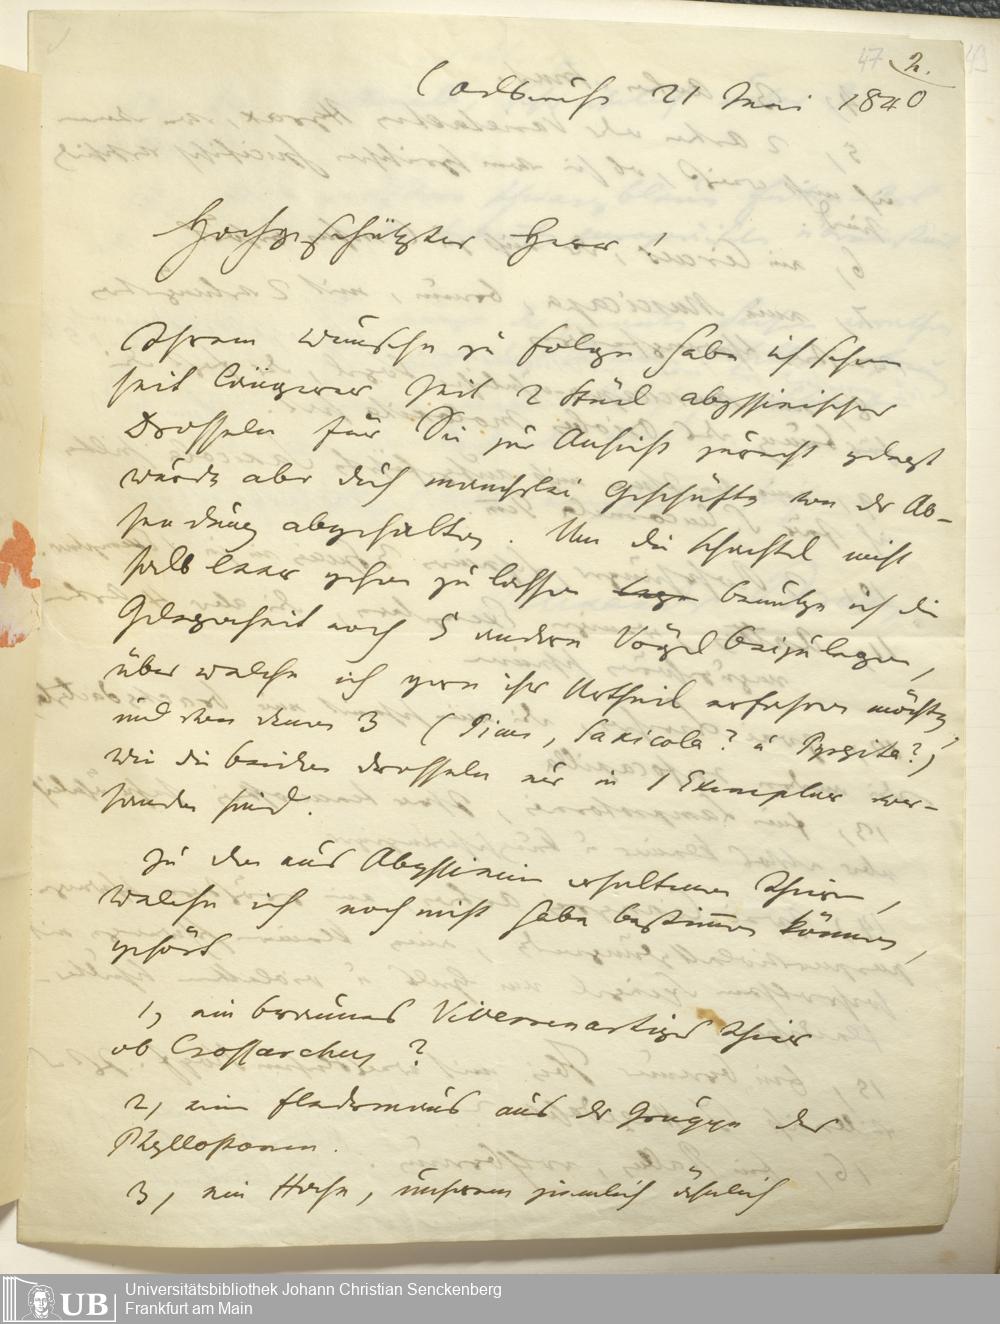 47 2. 49
Carlsruhe 21 Mai 1840
Hochgeschätzter Herr!
Ihrem Wunsche zu folge habe ich schon
seit längerer Zeit 2 Stück abyssinischer
Drosseln für Sie zur Ansicht zurecht gelegt
wurde aber durch mancherlei Geschäfte von der Ab-
sendung abgehalten. Um die Schachtel nicht
halb leer gehen zu lassen benütze ich die
Gelegenheit noch 5 andere Vögel beizulegen,
über welche ich gern ihr Urtheil erfahren möchte,
und von denen 3 (Picus, Saxicola? u Pyrgita?)
wie die beiden Drosseln nur in 1 Exemplar vor-
handen sind.
Zu den aus Abyssinien erhaltenen Thieren,
welche ich noch nicht habe bestimmen können,
gehört
1, ein braunes Viverrenartiges Thier
ob Crossarchus?
2, eine Fledermaus aus der Gruppe der
Phyllostomen.
3, ein Hase, unserem ziemlich ähnlich
UB Universitätsbibliothek Johann Christian Senckenberg
Frankfurt am Main